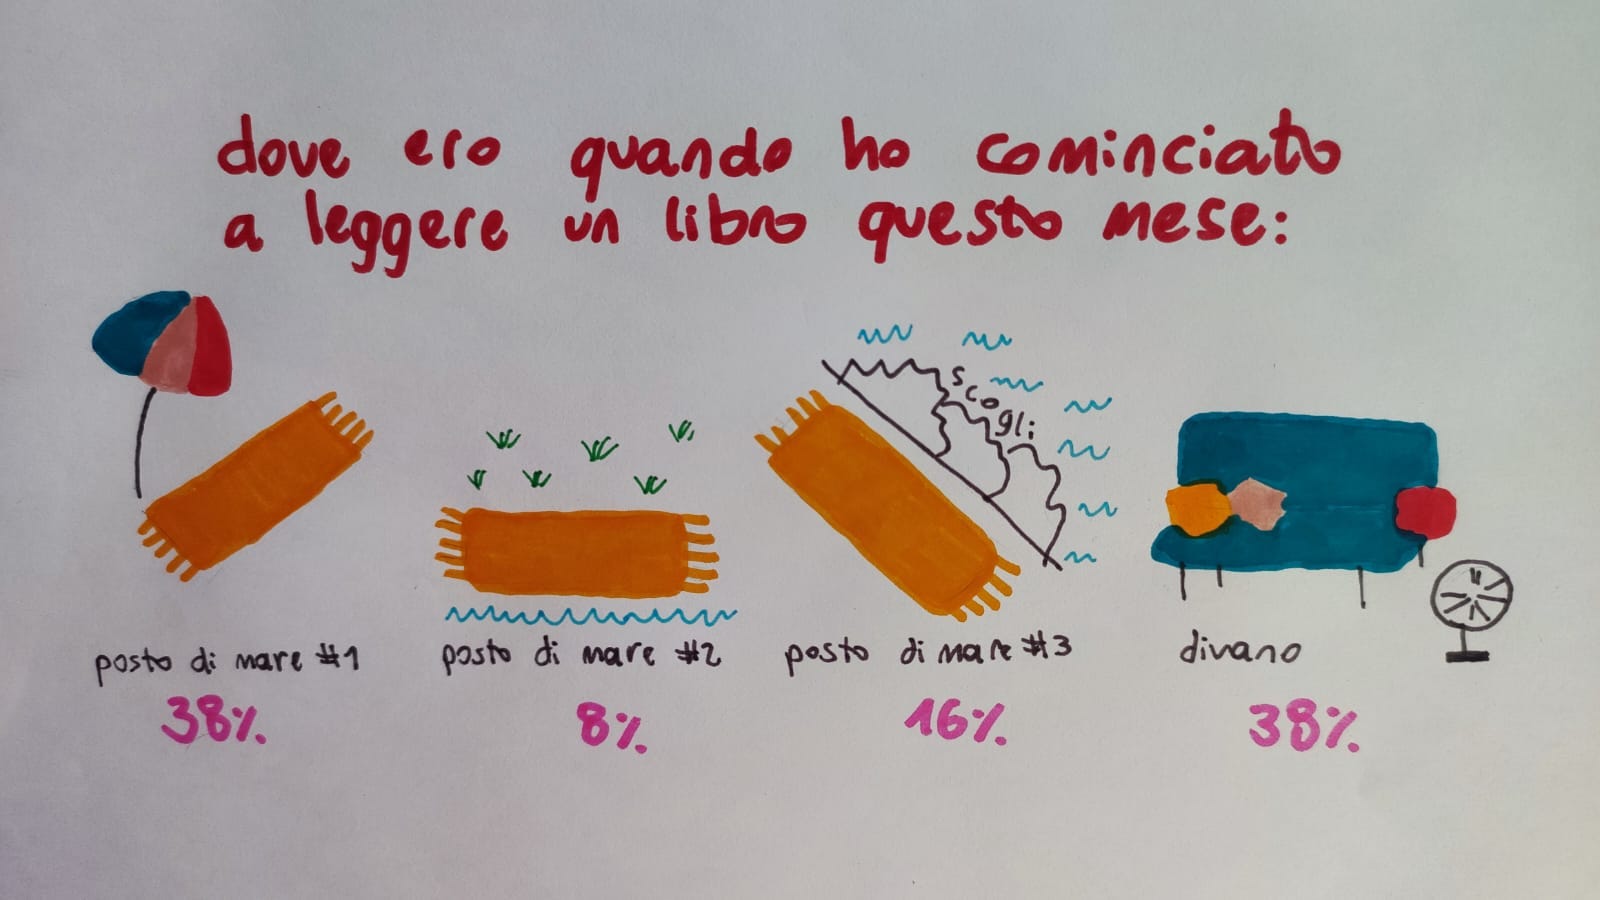 dove ero quando ho cominciato
a leggere un libro questo mese:
scogli
posto di mare #1
posto di mare #2
posto di mare #3
divano
38%
8%
16%
38%